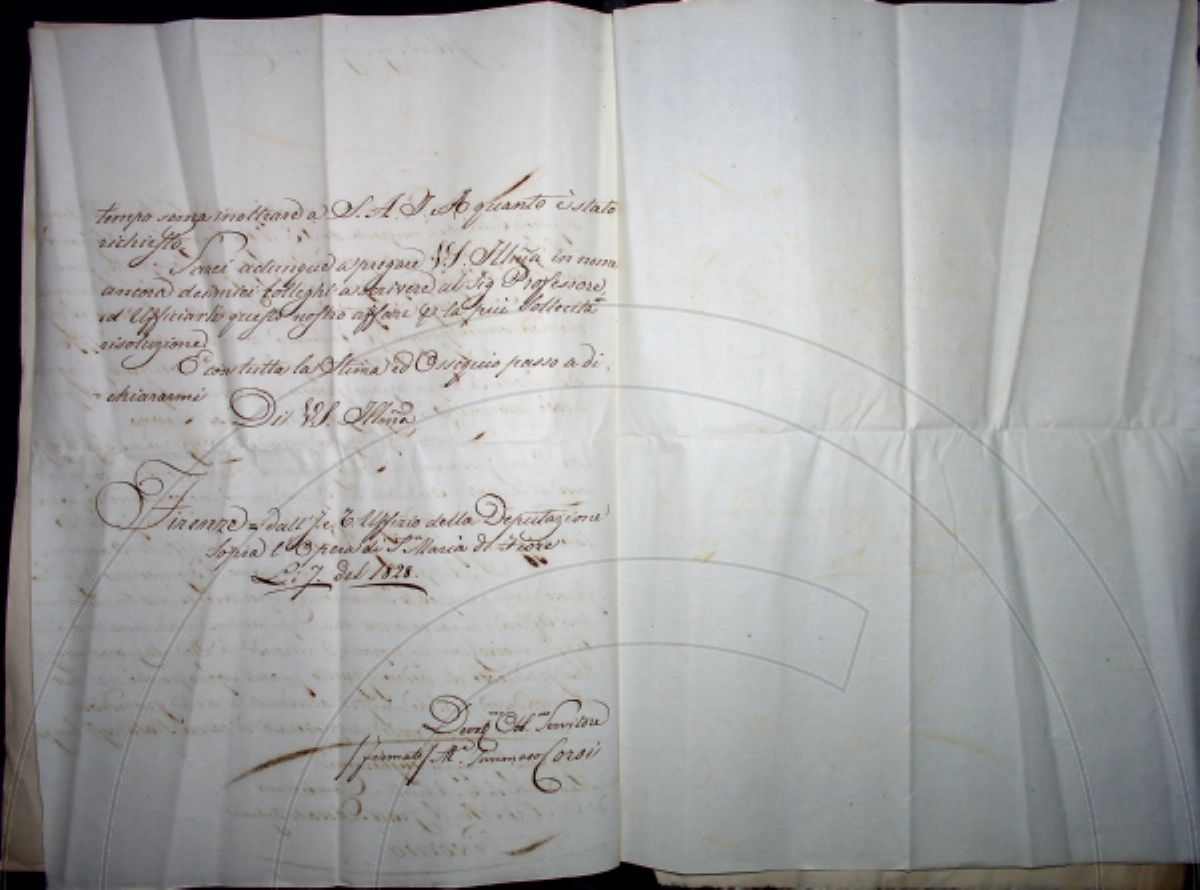 tempo senza inoltrare a S. A. I. R quanto è stato
richiesto.
Sarei adunque a pregare V.S. Illm̃a in nome
ancora de miei Colleghi a scrivere al Sig Professore,
ed Ufficiarlo questo nostro affare p la più sollecita
risoluzione
E con tutta la Stima ed Ossequio passo a di-
-chiararmi
Di V.S. Illm̃a
Firenze = dall'I. e R. Uffizio della Deputazione
Sopra l'Opera di S. Maria del Fiore
Li 7. del 1828.
Devot.mo Obb.mo Servitore
/firmato/ M.e Tommaso Corsi